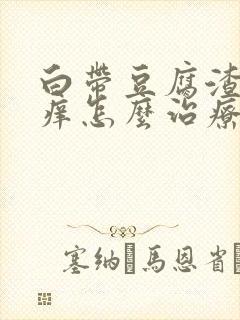 白帶豆腐渣
痒怎麼治療
塞纳 馬恩省